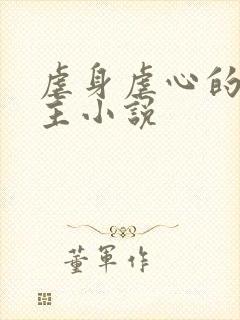 虐身虐心的
主小説
董軍作